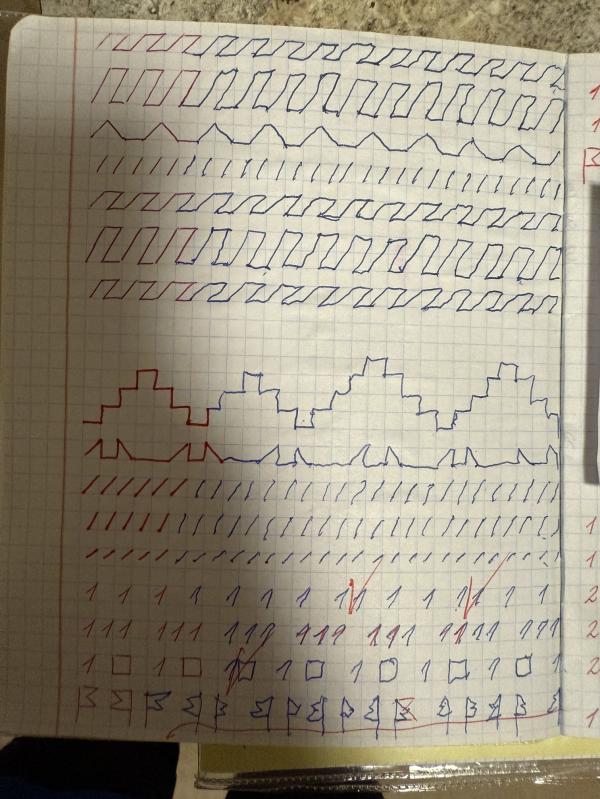 1 1 1 1 1 1 1 11 1 1 11 1 1
111 111 111 111 111 1111 111
1 □ 1 □ 1 □ 1 □ 1 □ 1 □ 1 □ 1
1
1
1
1
2
2
2
1